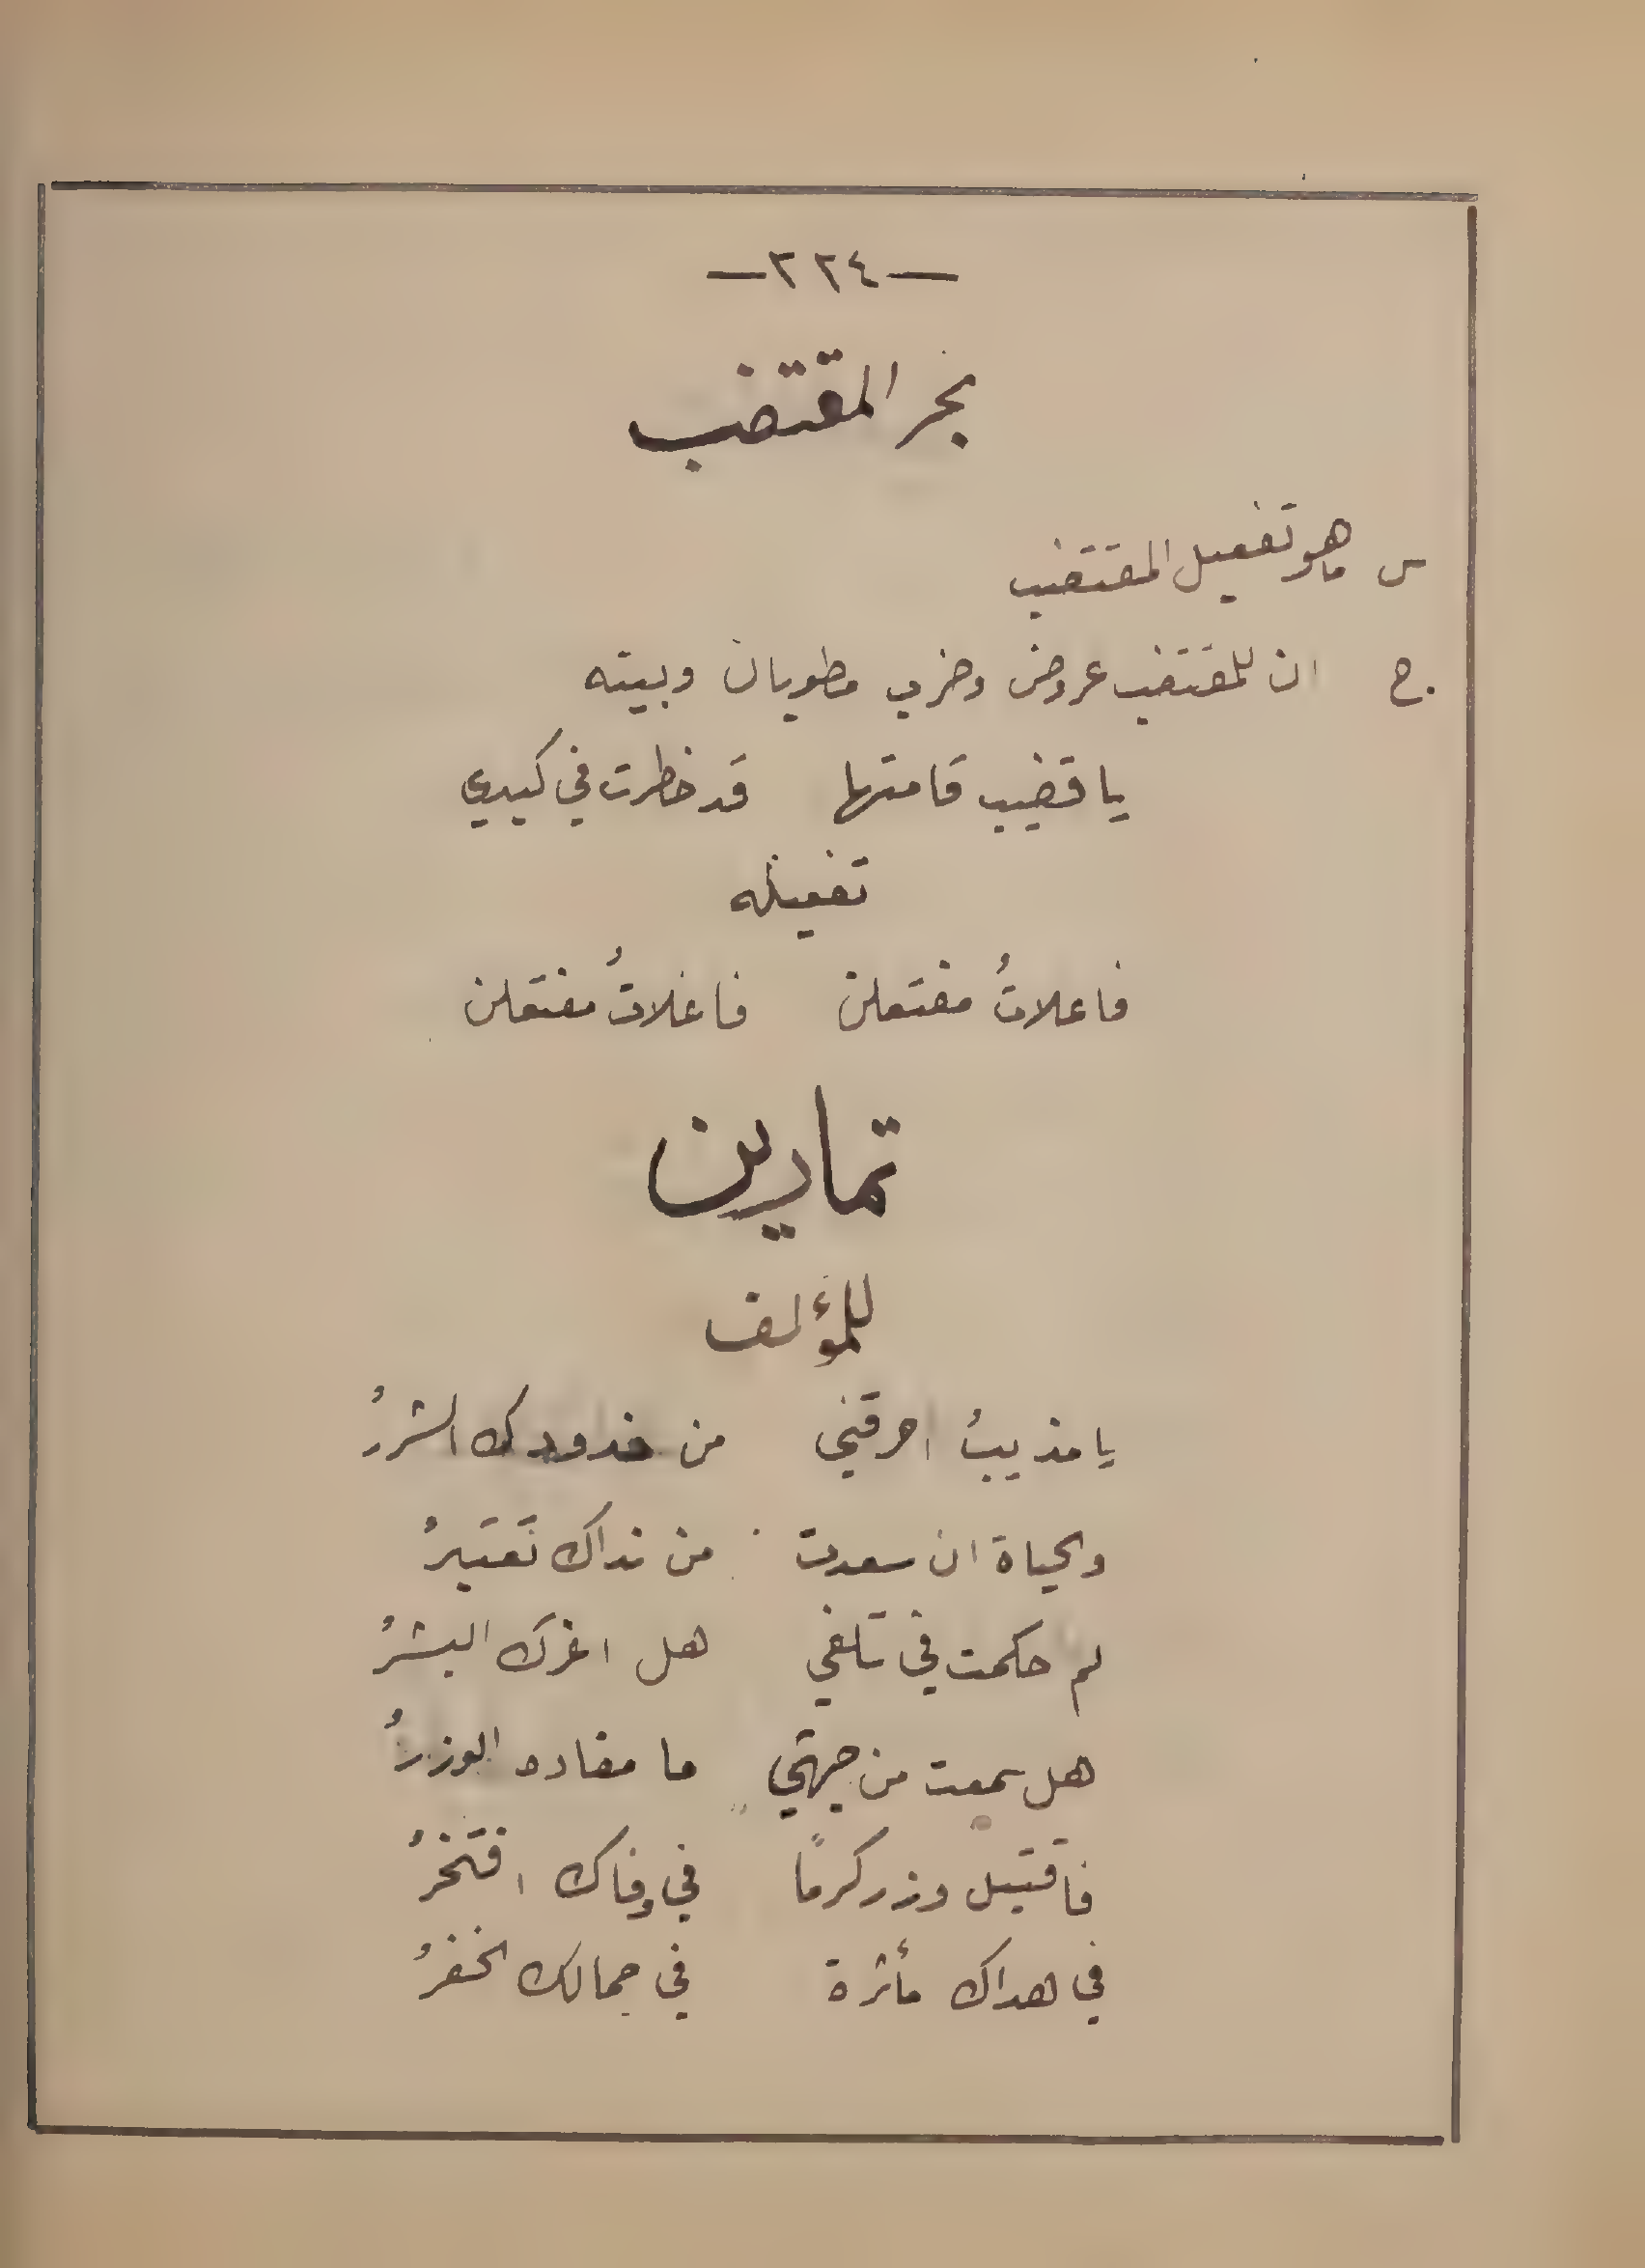 —٢٢٤—
بحر المقتضب
س ماهو تفعيل المقتضب
ج. ان للمقتضب عروض وضرب مطويان وبيته
يا قضيب قامتها قد خطرت في كبدي
تفعيله
فاعلاتُ مفتعلن فاعلاتُ مفتعلن
تمارين
للمؤلف
يا مذيبُ احرقني من خدودك الشررُ
والحياة ان سعدت من نداك تَعتَبرُ
لم حكمت في تلفي هل اغرك البشرُ
هل سمعت من جهتي ما مفاده الوزرُ
فاقتبل وزر كرمًا في وفاك افتخرُ
في هداك مأثرة في جمالك الخفرُ